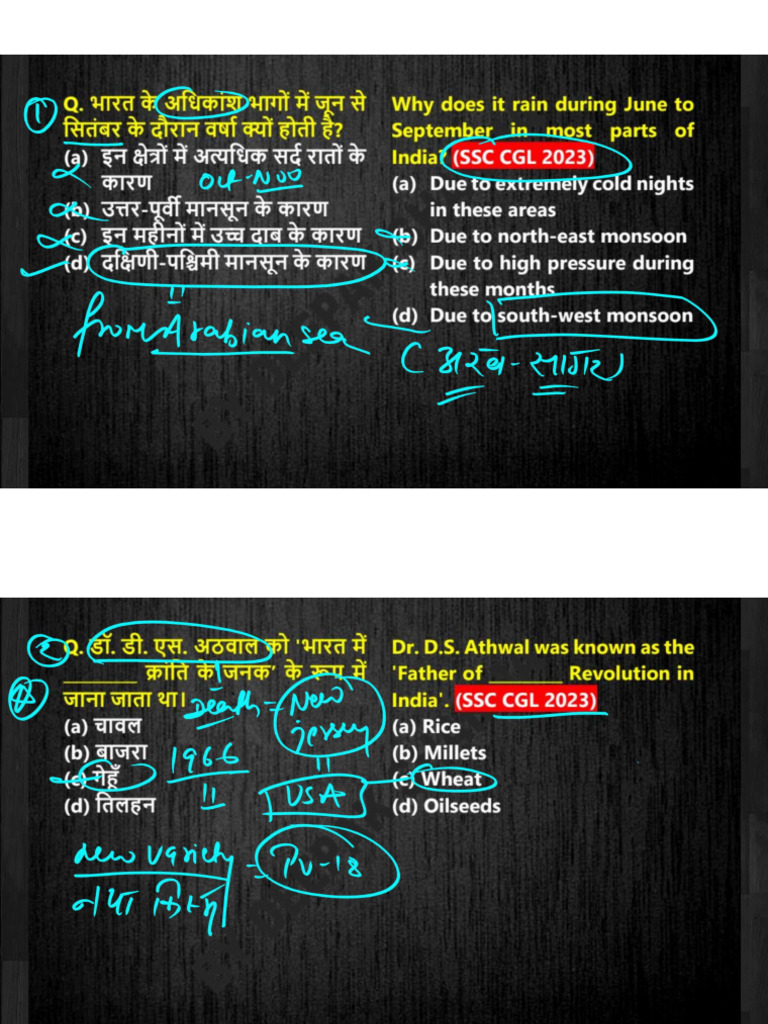 ① Q. भारत के अधिकांश भागों में जून से
सितंबर के दौरान वर्षा क्यों होती है?
(a) इन क्षेत्रों में अत्यधिक सर्द रातों के
कारण
(b) उत्तर-पूर्वी मानसून के कारण
(c) इन महीनों में उच्च दाब के कारण
(d) दक्षिणी-पश्चिमी मानसून के कारण
from Arabian sea
Why does it rain during June to
September in most parts of
India? (SSC CGL 2023)
(a) Due to extremely cold nights
in these areas
(b) Due to north-east monsoon
(c) Due to high pressure during
these months
(d) Due to south-west monsoon
(अरब-सागर)
Q. डॉ. डी. एस. अठवाल को 'भारत में
________ क्रांति के जनक’ के रूप में
जाना जाता था।
(a) चावल
(b) बाजरा
(c) गेहूँ
(d) तिलहन
Death = New
jersey
1966
USA
new variety = PV-18
नया किस्म
Dr. D.S. Athwal was known as the
'Father of ________ Revolution in
India'. (SSC CGL 2023)
(a) Rice
(b) Millets
(c) Wheat
(d) Oilseeds